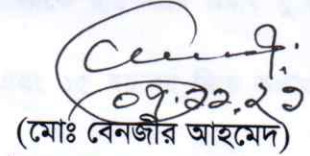 ০৭.১২.২১
(মোঃ বেনজীর আহমেদ)